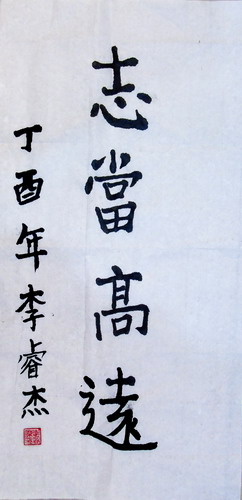 志當高遠
丁酉年李睿杰